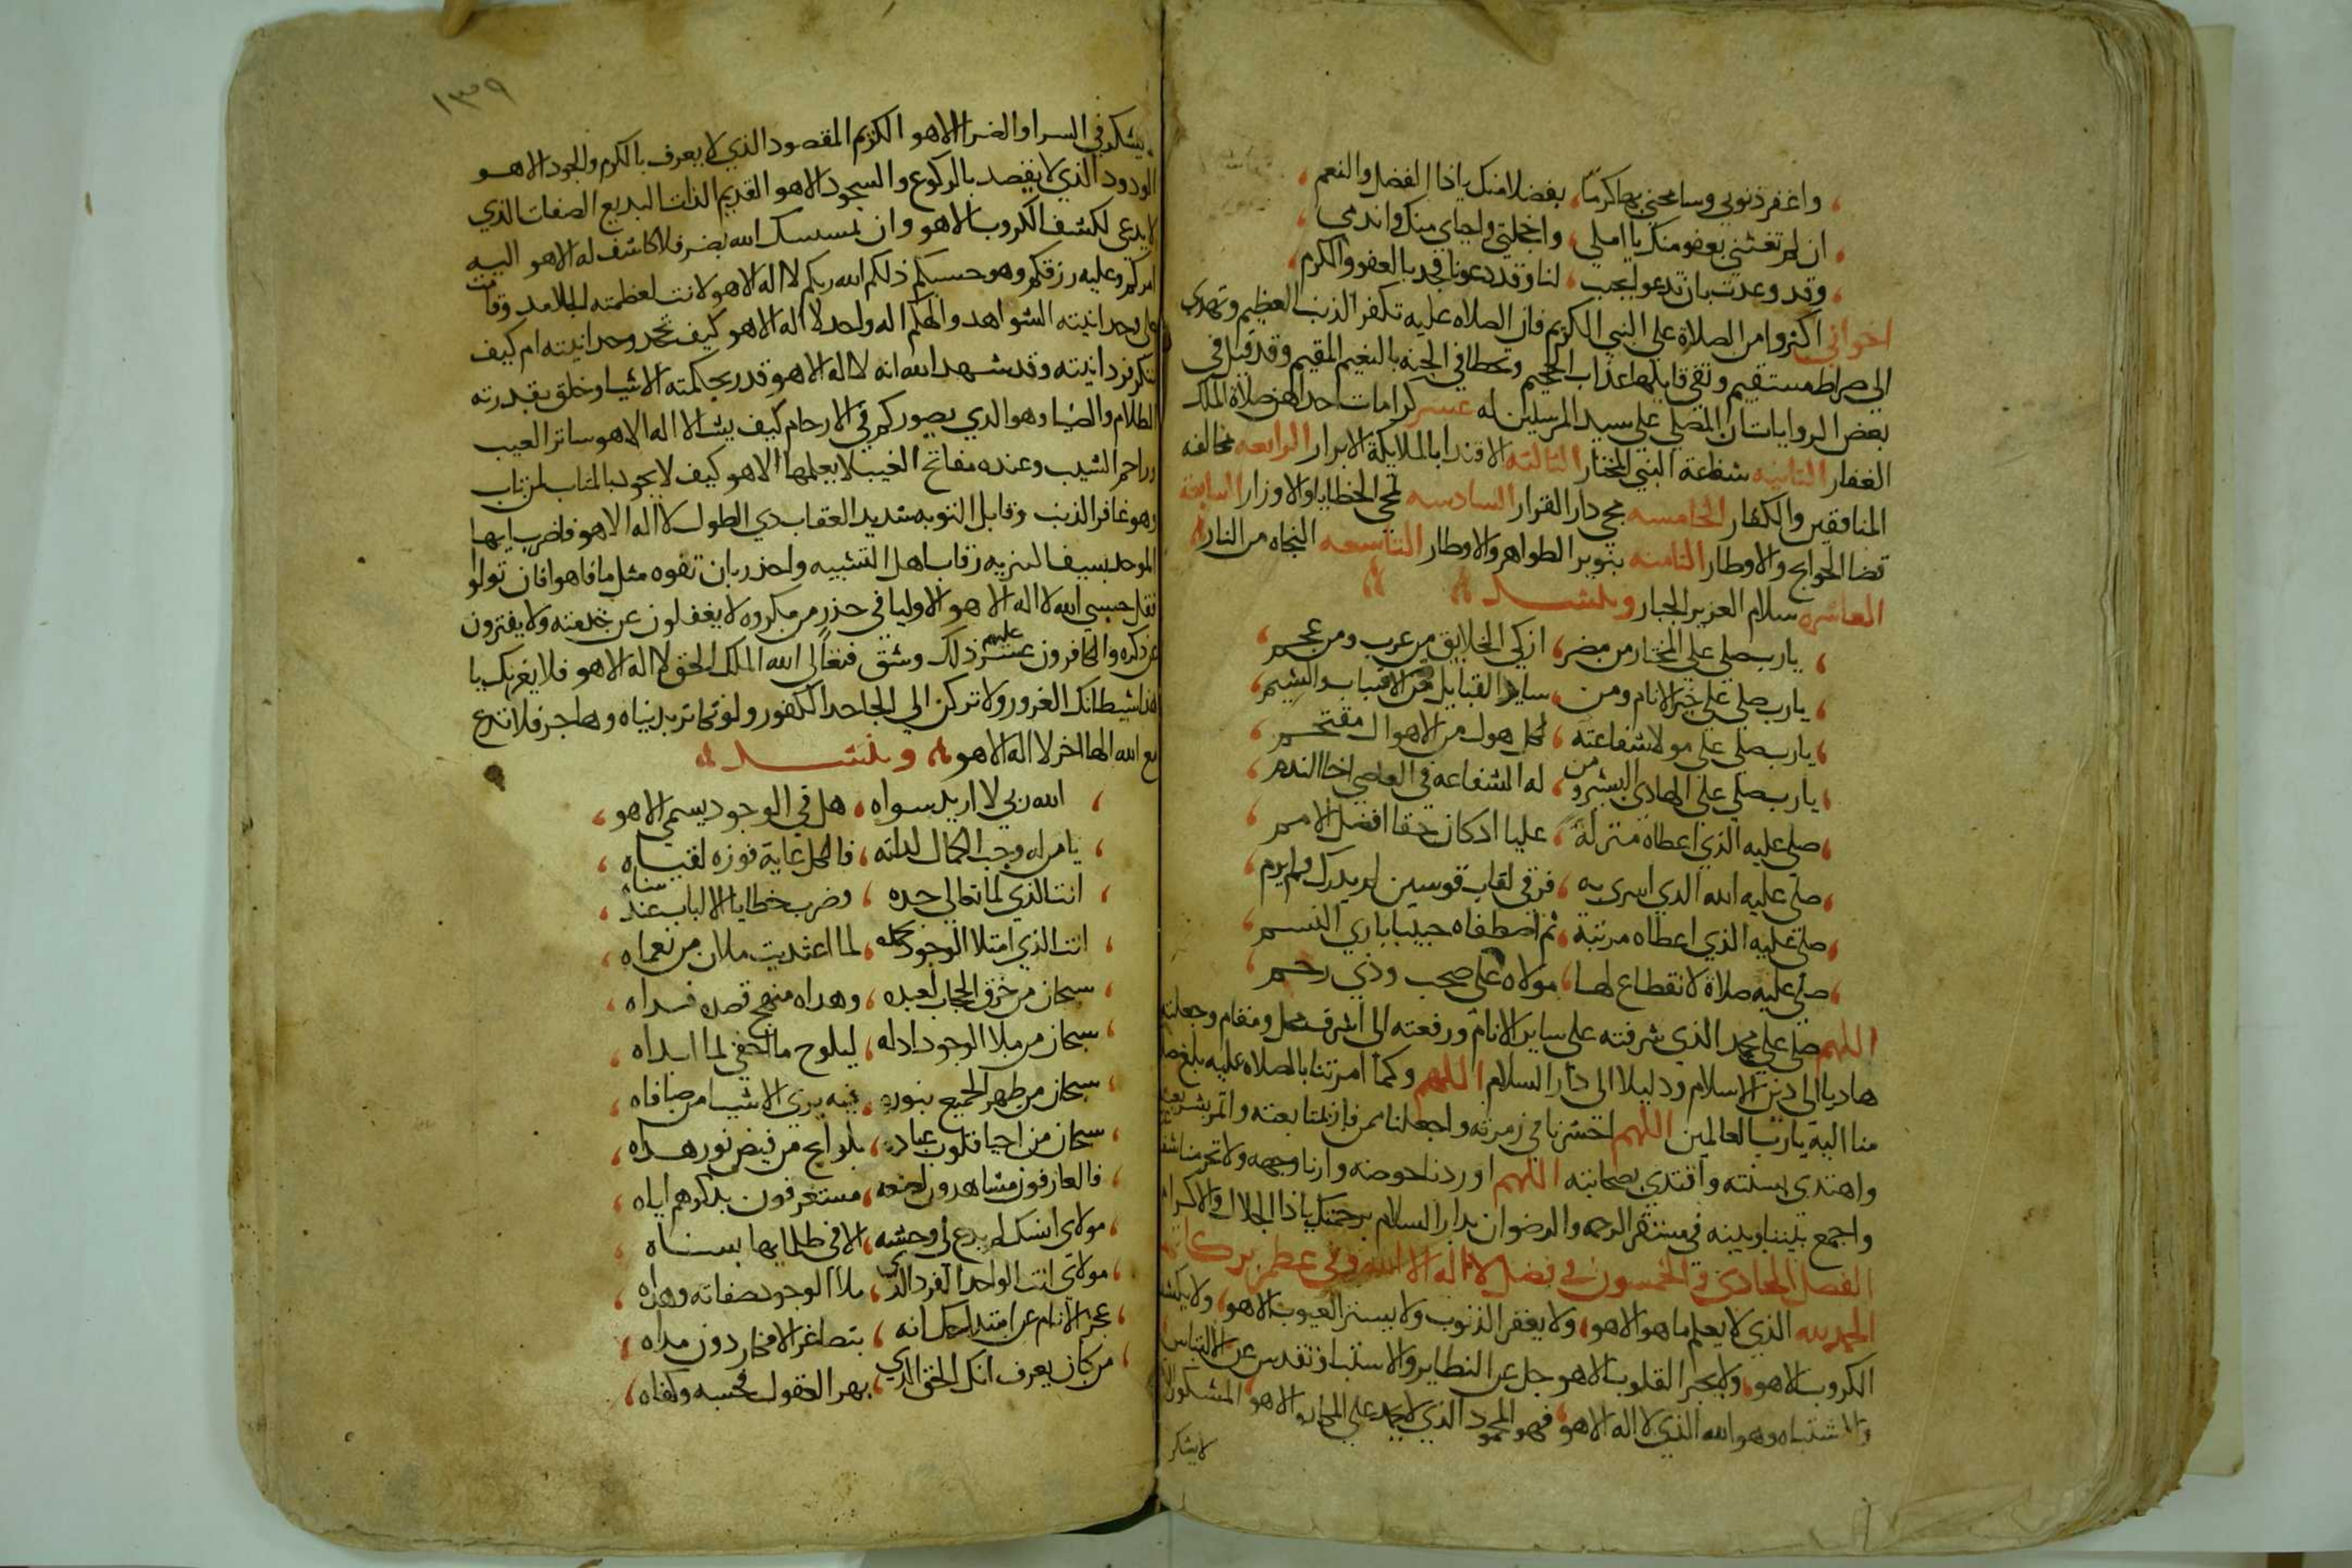 واغفر ذنوبي وسامحني بها كرما، بفضلا منك ياذا الفضل والنعم
ان لم تغشني بعفو منك يا املي، واخجلتي واحياي منك واندمي
وقد وعدت بان تدعو لنجب، لنا وقد دعونا فجد بالعفو والكرم
اخواني اكثروا من الصلاة على النبي الكريم فان الصلاه عليه تكفر الذنب العظيم وتهدي
الى صراط مستقيم وتقي قايلها عذاب الجحيم وتحظا في الجنه بالنعيم المقيم وقد قيل في
بعض الروايات ان المصلي على سيد المرسلين له عشر كرامات احداهن صلاة الملك
الغفار الثانيه شفاعة النبي المختار الثالثه الاقتدا بالملايكة الابرار الرابعه مخالفه
المنافقين والكفار الخامسه دار القرار السادسه محي الخطايا والاوزار السابعة
قضا الحوايج والاوطار الثامنه بتوير الطواهر والاوطار التاسعه النجاه من النار
العاشره سلام العزيز الجبار وينشد
يارب صلي على المختار من مضر، ازكى الخلايق من عرب ومن عجم
يارب صلي على خير الانام ومن، ساير القبايل الانساب والشيم
يارب صلي على مولا شفاعته، لكل هول من الاهوال مقتحم
يارب صلي على الهادي البشير ومن، له الشفاعه في العاصي اخا الندم
صلى عليه الذي اعطاه منزلة، عليا اذ كان حقا افضل الامم
صلى عليه الله الذي اسرى به، فرقى لقاب قوسين لم يدرك ولم يرم
صلى عليه الذي اعطاه مرتبة، ثم اصطفاه حبيبا باري النسم
صلى عليه صلاة لا نقطاع لها، مولاه على صحب وذي رحم
اللهم صلي على محمد الذي شرفته على ساير الانام ورفعته الى اشرف محل ومقام وجعلته
هاديا الى دين الاسلام ودليلا الى دار السلام اللهم وكما امرتنا بالصلاه عليه بلغ
منا اليه يارب العالمين اللهم احشرنا في زمرته واجعلنا ممن فاز بمتابعته
واهتدى بسنته واقتدى بصحابته اللهم اوردنا حوضه وارنا وجهه ولا تحرمنا
واجمع بيننا وبينه في مستقر الرحمه والرضوان بدار السلام برحمتك ياذا الجلال والاكرام
الفصل الحادي والخمسون في فضل لا اله الا الله
الحمد لله الذي لا يعلم ما هو الا هو، ولا يغفر الذنوب ولا يستر العيوب الا هو، ولا يكشف
الكروب الا هو، ولا يجبر القلوب الا هو جل عن النظاير والاشباه وتقدس عن الالتباس
والاشتباه وهو الله الذي لا اله الا هو، فهو المحمود الذي لا يحمد على المكاره الا هو المشكور
لا يشكر
١٣٩
يشكر في السرا والضرا الا هو الكريم المقصود الذي لا يعرف بالكرم والجود الا هو
الودود الذي لا يقصد بالركوع والسجود الا هو القديم الذات البديع الصفات الذي
لا يدعى لكشف الكروب الا هو وان يمسسك الله بضر فلا كاشف له الا هو اليه
امركم وعليه رزقكم وهو حسبكم ذلكم الله ربكم لا اله الا هو لانت لعظمته الجلامد وقامت
على وحدانيته الشواهد والهكم اله واحد لا اله الا هو كيف تجحد وحدانيته ام كيف
تنكر فردانيته وقد شهد الله انه لا اله الا هو قدر بحكمته الاشيا وخلق بقدرته
الظلام والضيا وهو الذي يصوركم في الارحام كيف يشا لا اله الا هو ساتر العيب
وراحم الشيب وعنده مفاتح الغيب لا يعلمها الا هو كيف لا يجود بالمتاب لمن تاب
وهو غافر الذنب وقابل التوبه شديد العقاب ذي الطول لا اله الا هو فاضرب ايها
الموحد بسيف التنزيه رقاب اهل التشبيه واحذر بان تفوه مثل ما فاهوا فان تولوا
فقل حسبي الله لا اله الا هو الاوليا في حذر من مكره لا يغفلون عن خدمته ولا يفترون
عن ذكره والكافرون عسر عليهم ذلك وشق فتعالى الله الملك الحق لا اله الا هو فلا يغرنك يا
هذا شيطانك الغرور ولا تركن الي الجاحد الكفور ولو زينة دنياه وهاجر فلا تدع
مع الله الها اخر لا اله الا هو وينشد
الله ربي لا اريد سواه، هل في الوجود يسمى الا هو
يا من له وجب الكمال لذاته، فالكل غاية فوزه لقياه
انت الذي لما تعالى جده، وضرب خطايا الالباب عند سناه
انت الذي امتلا الوجود كله، لما اغتديت ملان من نعماه
سبحان من خرق الحجاب لعبده، وهداه منهج قصده
سبحان من ملا الوجود ادله، ليلوح ما اخفى لما ابداه
سبحان من ظهر الجميع بنوره، فيه يرى الاشيا من صافاه
سبحان من احيا قلوب عباده، بلوايح من فيض نور هداه
فالعارفون مشاهدون لصنعه، مستغرقون بذكرهم اياه
مولاي انسك لم يدع لي وحشه، الا في ظلمايها بسناه
مولاي انت الواحد الفرد الذي، ملا الوجود صفاته وهداه
عجز الانام عن امتداحك انه، يتصاغر الافكار دون مداه
من كان يعرف انك الحق الذي، بهر العقول فحسبه وكفاه